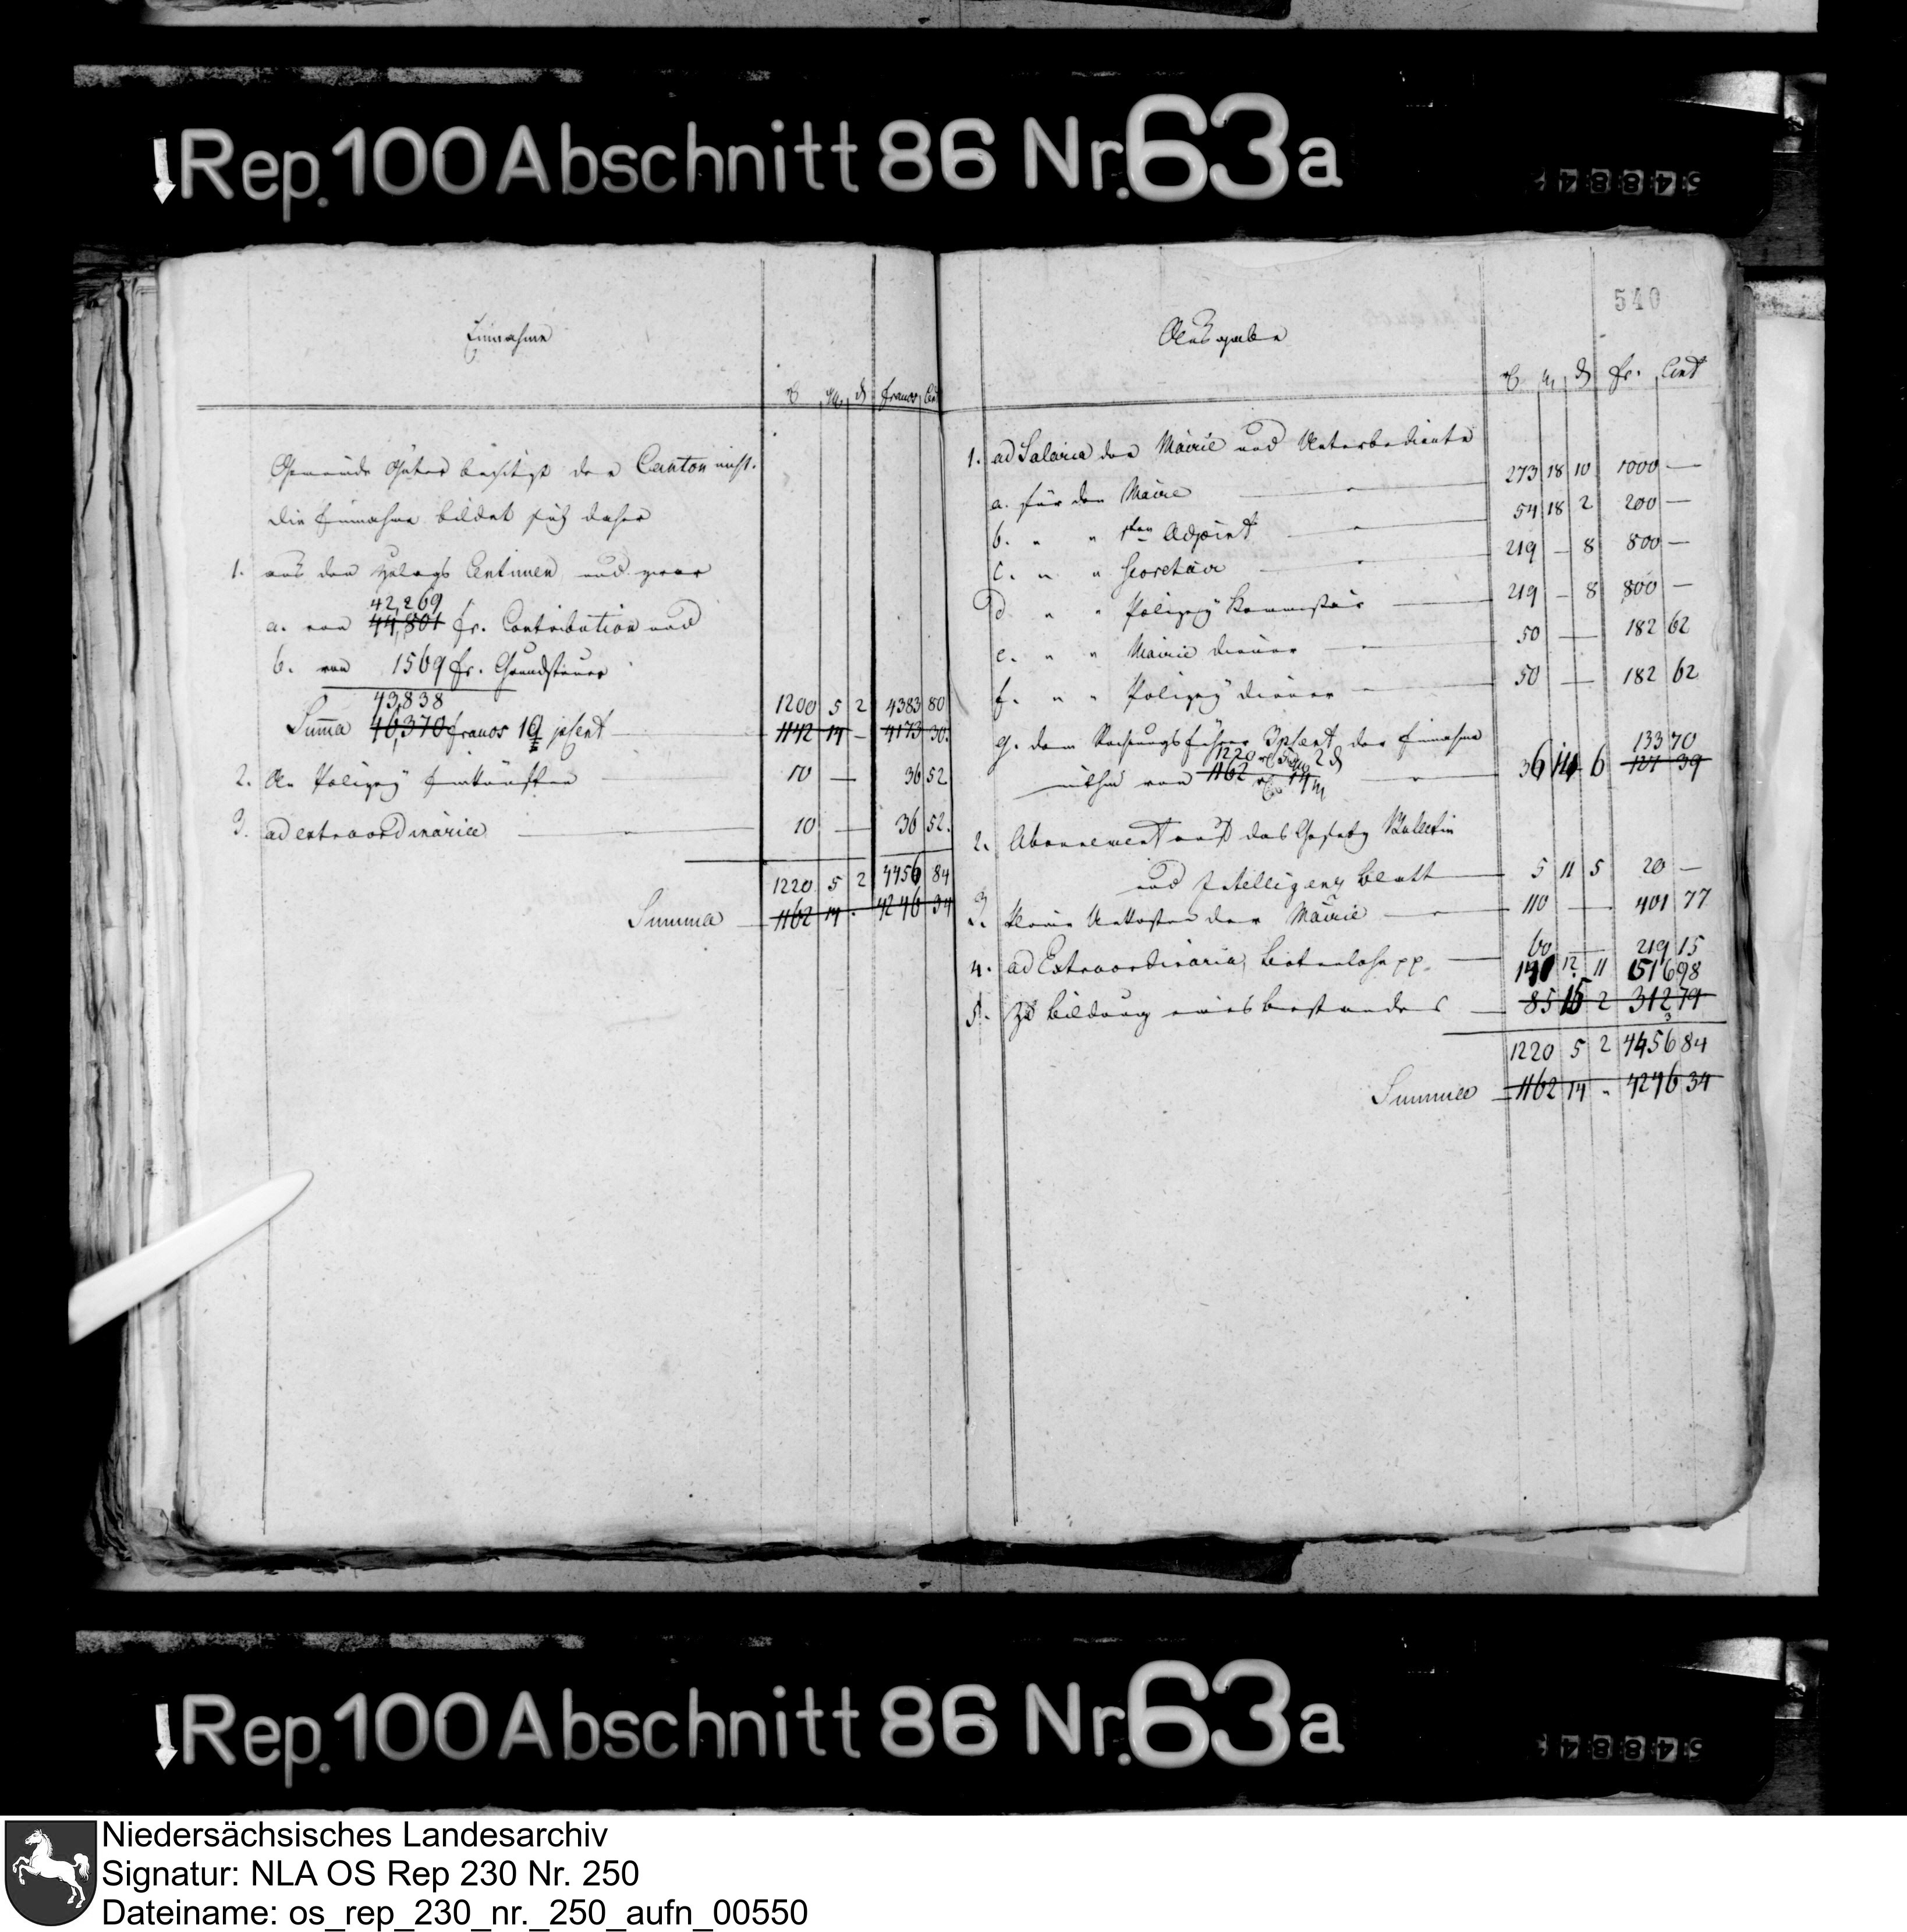 Rep. 100 Abschnitt 86 Nr. 63a
540
Einnahme
rt. gr. d francs Cent
Gemeinde Güter besitzt der Canton nicht.
Die Einnahme bildet sich daher
1. aus den Zulags Centimen, und zwar
42,269
a. von 44,801 fr. Contribution und
b. von 1569 fr. Grundsteuer
43,838 1200 5 2 4383 80
Summa 46,370 francs 10 pCent 1142 14 – 4173 30.
2. An Polizey Einkünften 10 – 36 52
3. ad extraordinaria 10 – 36 52.
1220 5 2 4456 84
Summa 1162 14 . 4246 34
Ausgabe
rt. gr. d fr. Cent
1. ad Salaria der Mairie und Unterbediente
a. für den Maire 273 18 10 1000 –
b. " " 1ten Adjoint 54 18 2 200 –
c. " " Secretair 219 – 8 800 –
d. " " Polizey Kommissair 219 – 8 800 –
e. " " Mairie Diener 50 – 182 62
f. " " Polizey Diener 50 – 182 62
g. dem Rechnungsführer 3 pCent der Einnahme
1220 5 2 d 133 70
mithin von 1162 14 36 14 6 127 39
2. Abonnement auf das Gesetz Bulletin
und Intelligenz Blatt 5 11 5 20 –
3. Kleine Unkosten der Mairie 110 – 401 77
4. ad Extraordinaria, Botenlohn pp. 60 – 219 15
12 11 516 98
5. Zu Bildung eines Bestandes 85 15 2 312 79
1220 5 2 4456 84
Summa 1162 14 " 4246 34
Rep. 100 Abschnitt 86 Nr. 63a
Niedersächsisches Landesarchiv
Signatur: NLA OS Rep 230 Nr. 250
Dateiname: os_rep_230_nr._250_aufn_00550